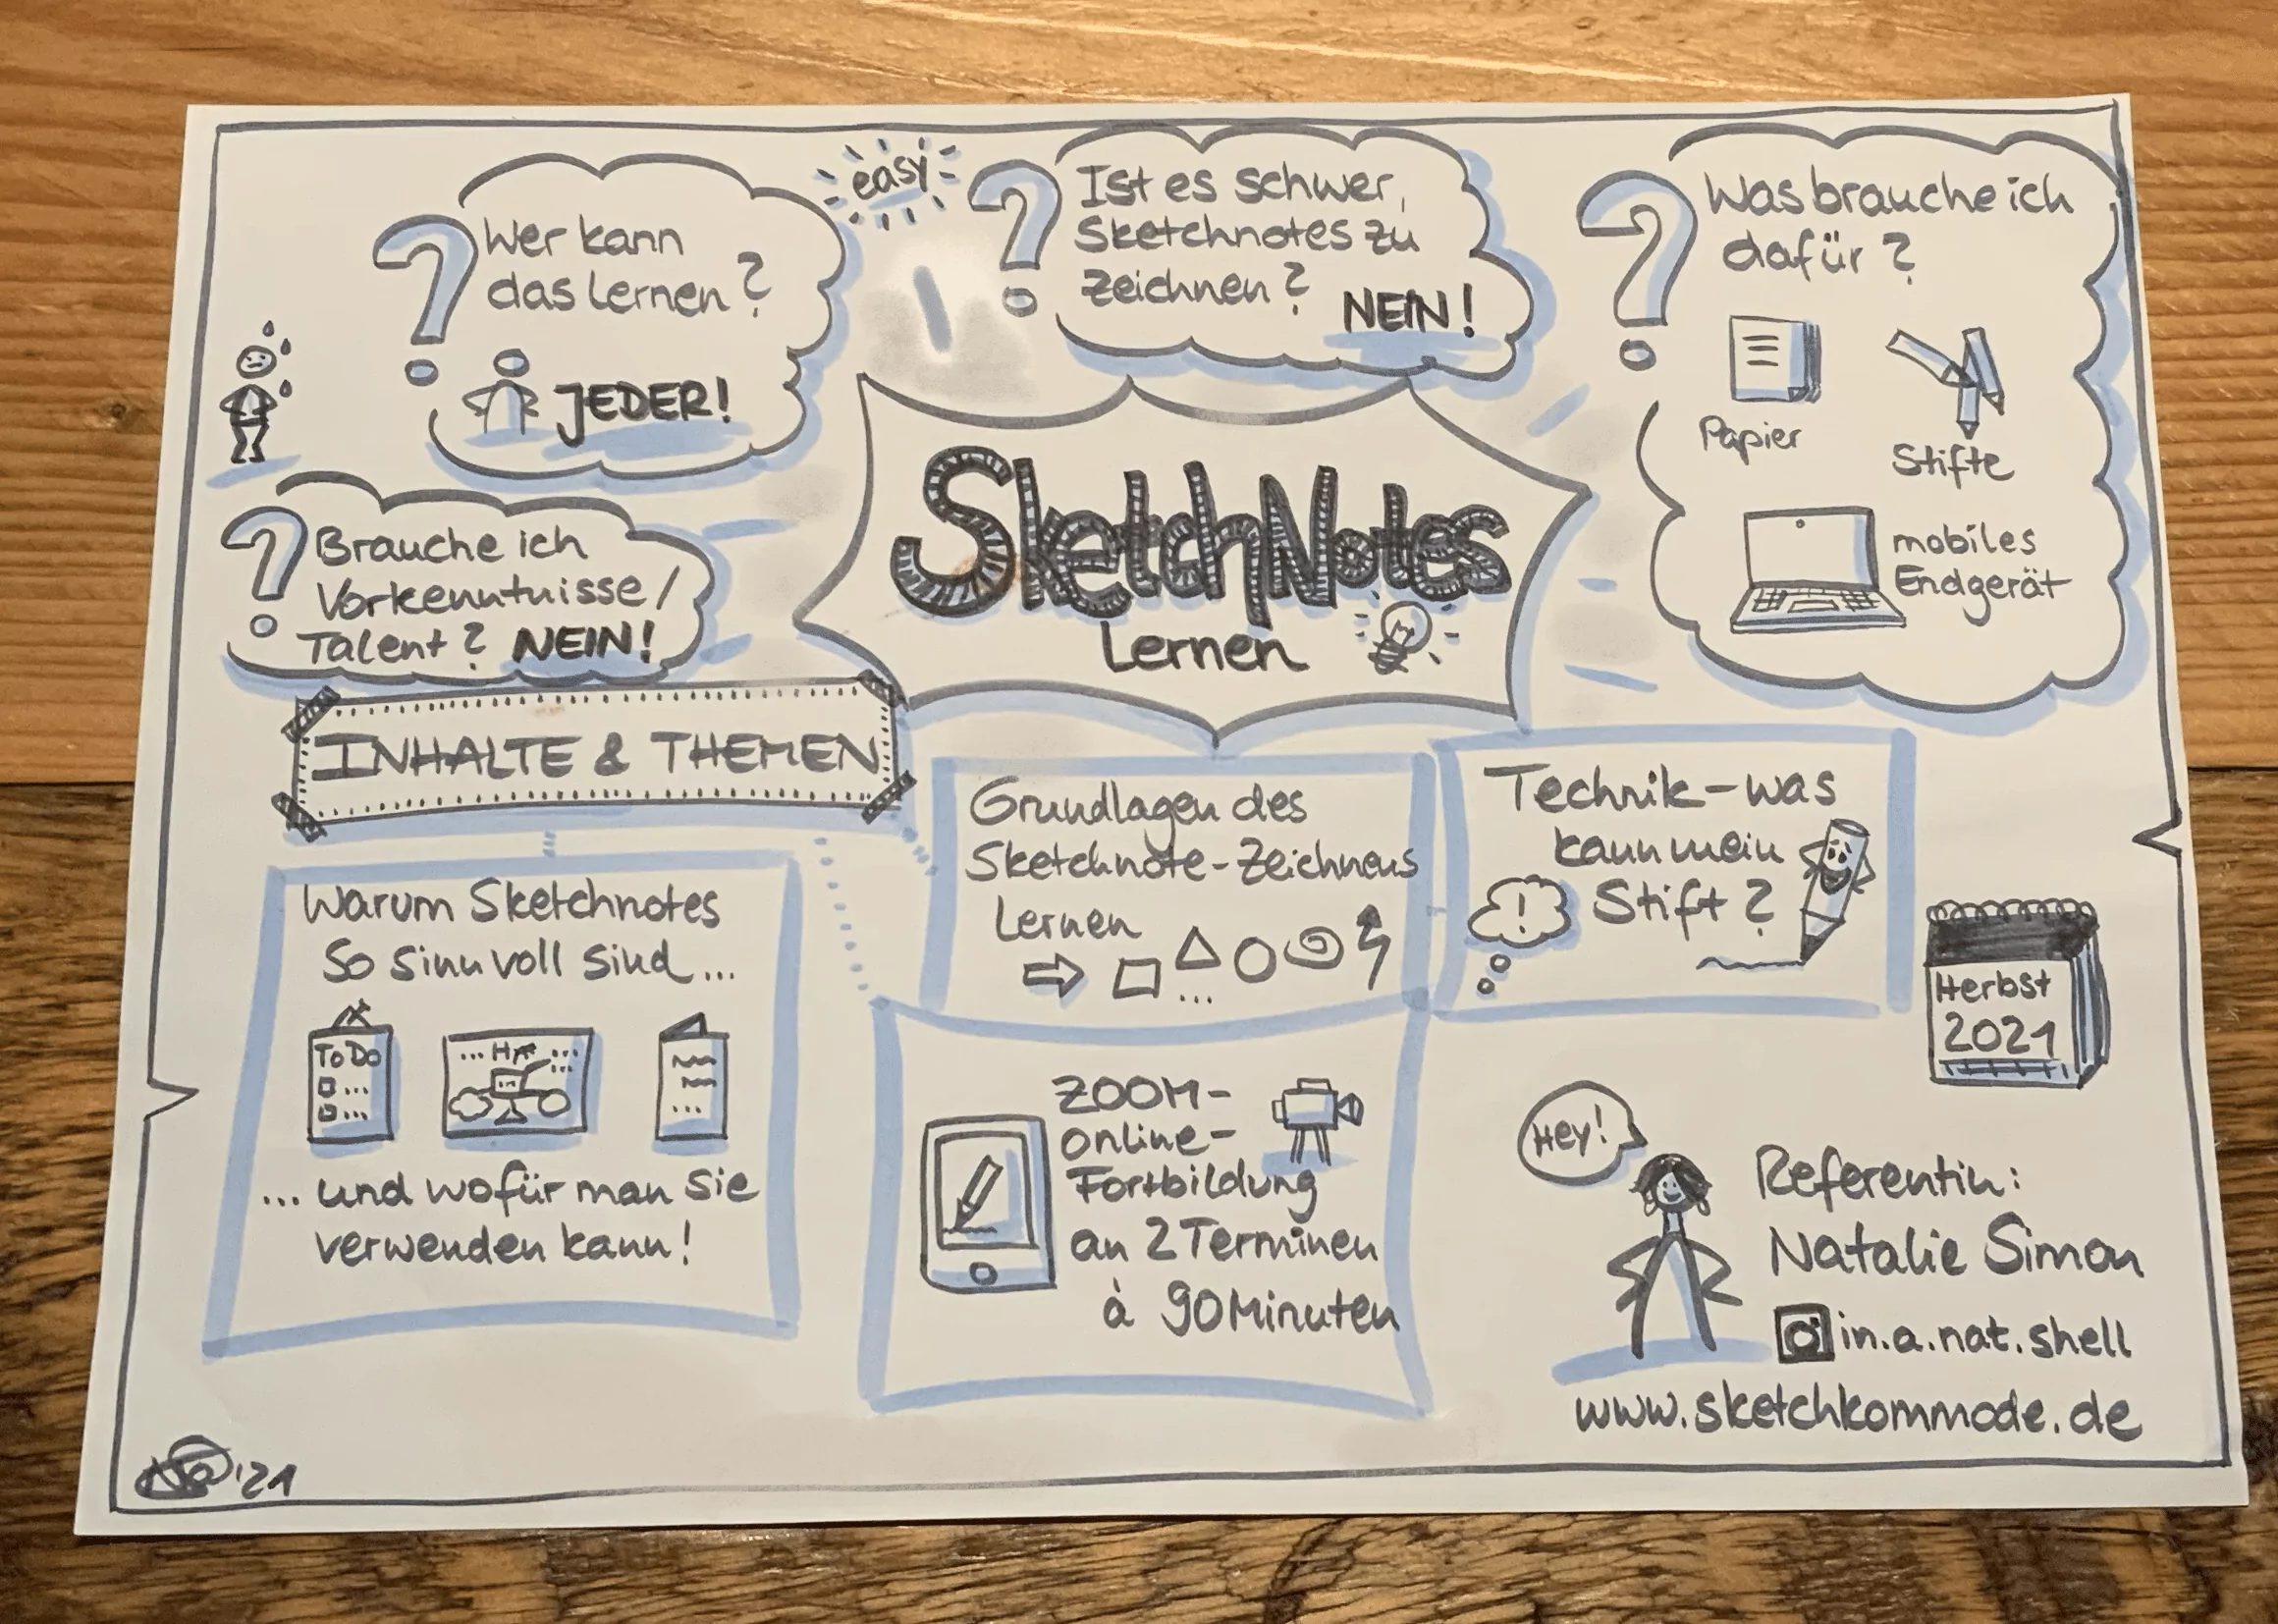 Wer kann
das lernen?
JEDER!
easy
Ist es schwer,
Sketchnotes zu
zeichnen?
NEIN!
Was brauche ich
dafür?
Papier
Stifte
mobiles
Endgerät
Brauche ich
Vorkenntnisse/
Talent? NEIN!
SketchNotes
Lernen
INHALTE & THEMEN
Warum Sketchnotes
so sinnvoll sind...
ToDo
...
...
...
... und wofür man sie
verwenden kann!
Grundlagen des
Sketchnote-Zeichnens
Lernen
...
Technik-was
kann mein
Stift?
!
ZOOM-
online-
Fortbildung
an 2 Terminen
à 90 Minuten
Herbst
2021
Hey!
Referentin:
Natalie Simon
in.a.nat.shell
www.sketchkommode.de
'21